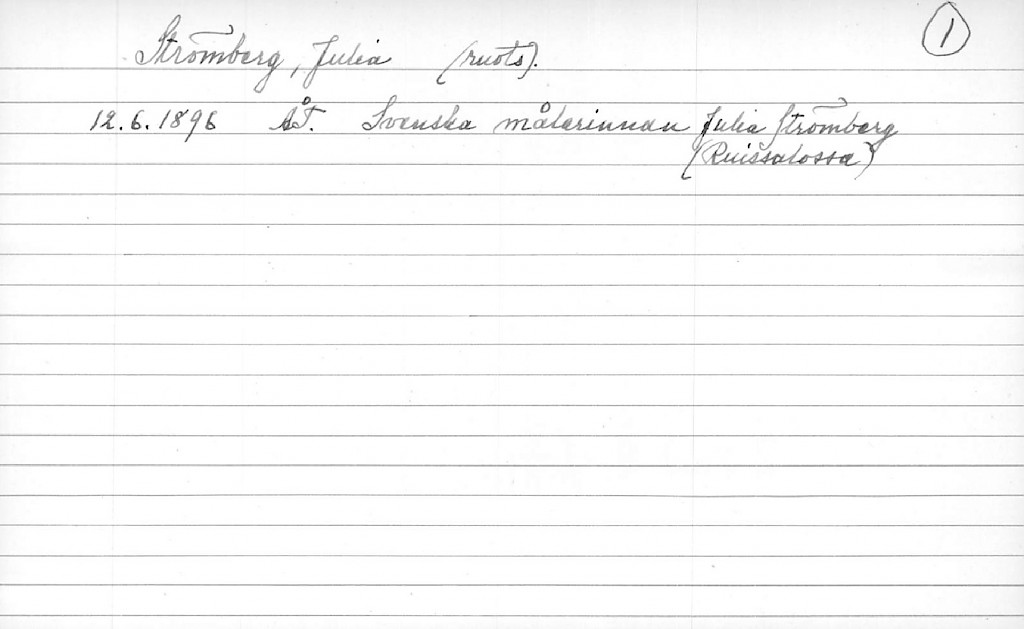 1
Strömberg, Julia (ruots).
12.6.1896 ÅT. Svenska målarinnan Julia Strömberg
(Ruissalossa)